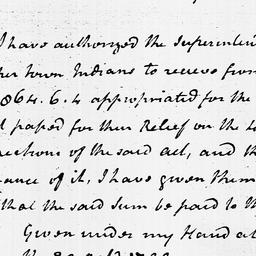 I have authorized the Superinten
her town Indians to receive from
864.6.4 appropriated for the
l passed for their Relief on the
rections of the said act, and th
uance of it, I have given them
that the said sum be paid to th
Given under my Hand at